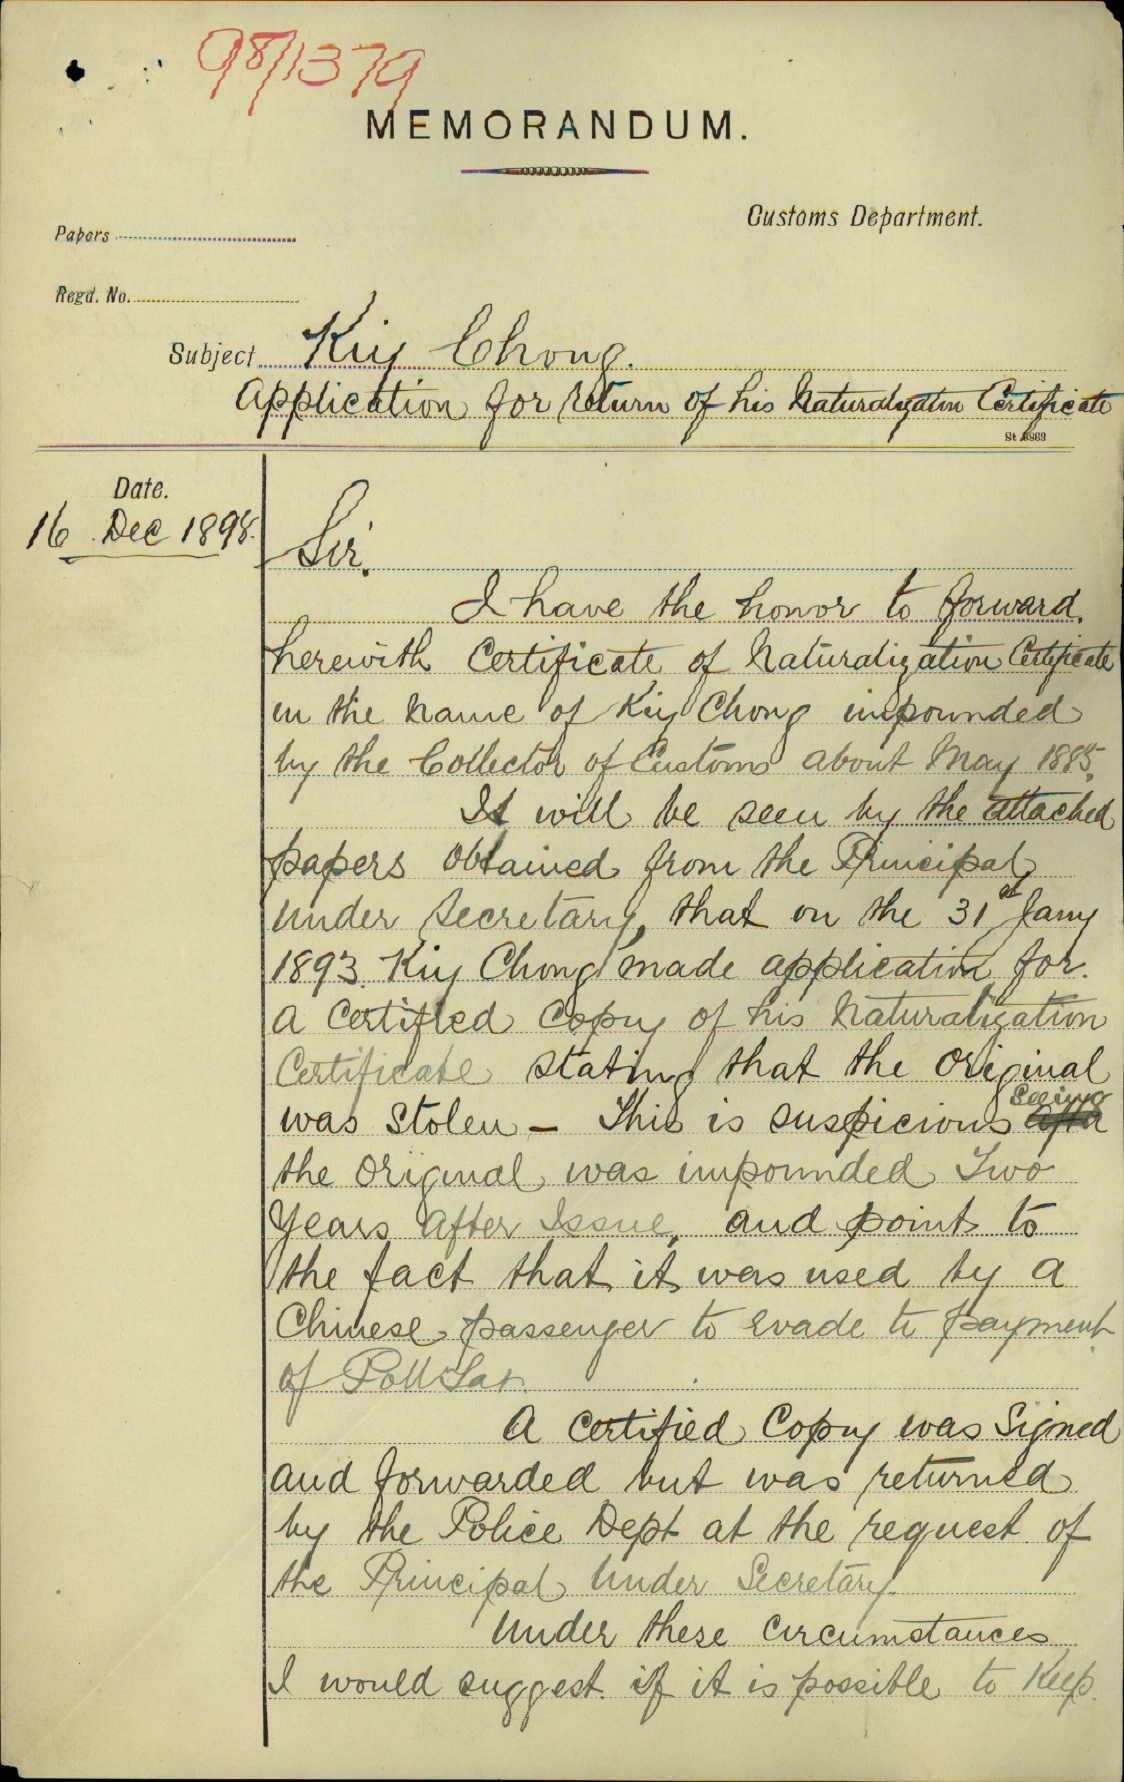 98/1379
MEMORANDUM.
Customs Department.
Papers
Regd. No.
Subject Kiy Chong.
Application for return of his Naturalization Certificate
St. 6963
Date.
16 Dec 1898.
Sir.
I have the honor to forward
herewith Certificate of Naturalization Certificate
in the name of Kiy Chong impounded
by the Collector of Customs about May 1885.
It will be seen by the attached
papers obtained from the Principal
Under Secretary, that on the 31st Jany
1893 Kiy Chong made application for
a Certified Copy of his Naturalization
Certificate stating that the Original
was Stolen – This is suspicious Seeing
the Original was impounded Two
Years after Issue, and point to
the fact that it was used by a
Chinese passenger to evade to payment
of Poll Tax.
A Certified Copy was Signed
and forwarded but was returned
by the Police Dept at the request of
the Principal Under Secretary.
Under these Circumstances
I would suggest if it is possible to Keep